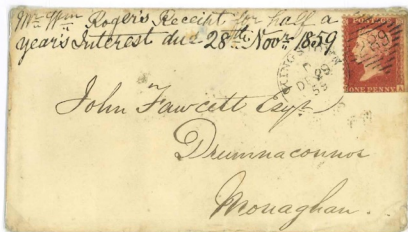 Mr Wm Roger's Receipt for half a
year's Interest due 28th Novr 1859
John Fawcett Esqr
Drumnaconnor
Monaghan.
DE 29
59
ONE PENNY